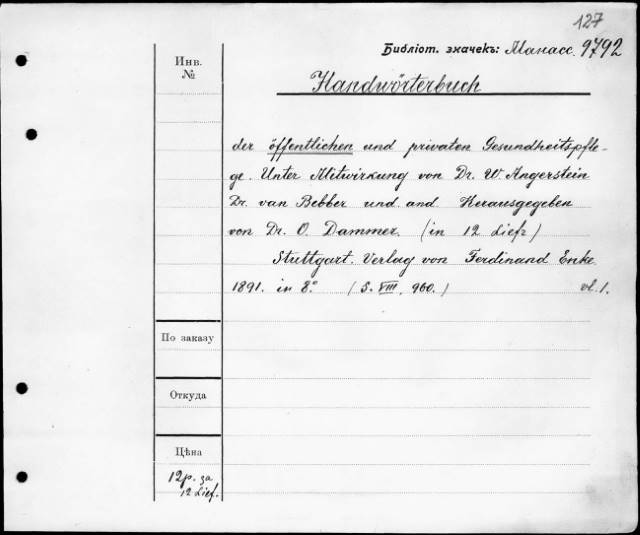 127
Библіот. значекъ: Манасс. 9792
Инв.
№
Handwörterbuch
der öffentlichen und privaten Gesundheitspfle-
ge. Unter Mitwirkung von Dr. W. Angerstein
Dr. van Bebber und. and. Herausgegeben
von Dr. O. Dammer. (in 12 Lief.)
Stuttgart. Verlag von Ferdinand Enke.
1891. in 8.° (S. VIII, 960.)
По заказу
Откуда
Цѣна
12р. за
12 Lief.